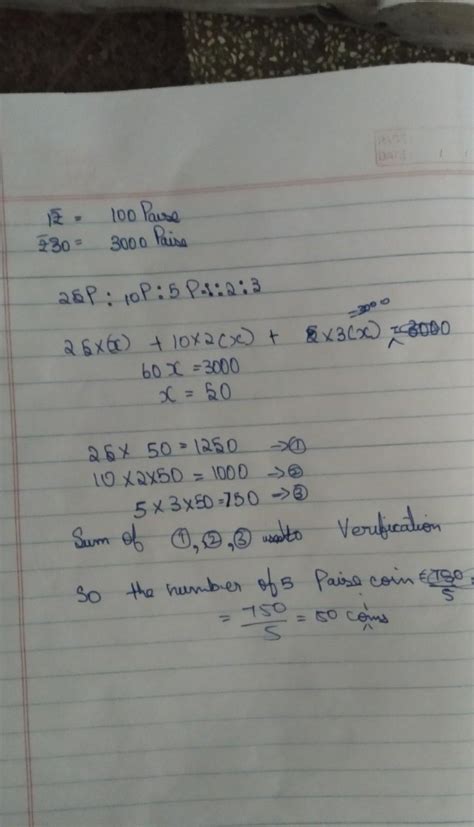 1₹ = 100 Paise
₹30 = 3000 Paise
25P : 10P : 5P = 1 : 2 : 3
=3000
25×(x) + 10×2(x) + 5×3(x) =3000
60x = 3000
x = 50
25× 50 = 1250 → ①
10×2×50 = 1000 → ②
5×3×50=750 → ③
Sum of ①, ②, ③ Verification
So the number of 5 Paise coin 750/5
= 750/5 = 50 coins